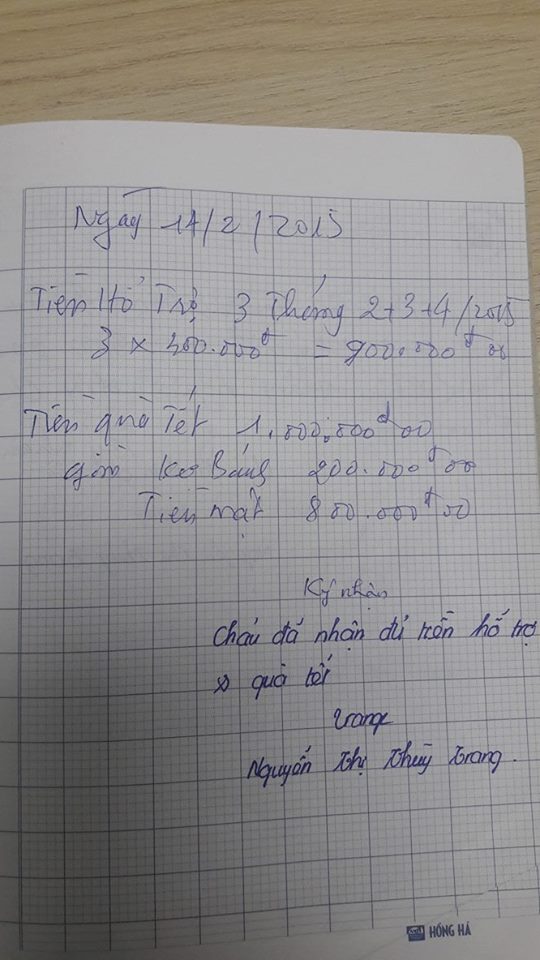 Ngày 14/2/2015
Tiền Hỗ Trợ 3 Tháng 2+3+4/2015
3 x 300.000đ = 900.000đ00
Tiền quà Tết 1.000.000đ00
gồm Kẹo Bánh 200.000đ00
Tiền mặt 800.000đ00
Ký nhận
Cháu đã nhận đủ tiền hỗ trợ
và quà tết
Trang
Nguyễn Thị Thuỳ Trang.
HỒNG HÀ